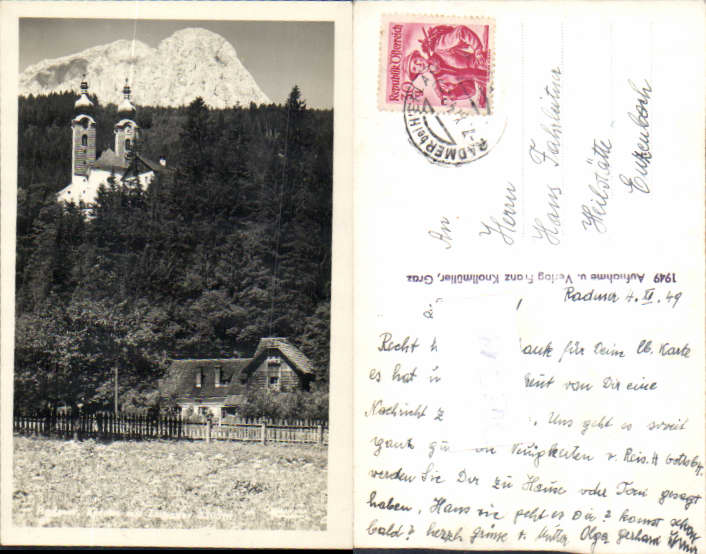 Republik Österreich
30
RADMER bei HIE
An
Herrn
Hans
Heilstätte
Enzenbach
1949 Aufnahme u. Verlag Franz Knollmüller, Graz
Radmer 4. XI. 49
Recht h ank für Deine lb. Karte
es hat u eut von Dir eine
Nachricht z . Uns geht es soweit
ganz gu Neuigkeiten v. Reis.
werden Sie Dir zu Hause oder Toni gesagt
haben. Hans wie geht es Dir? kommst schon
bald? herzl. grüsse v. Mutter Olga gerhard